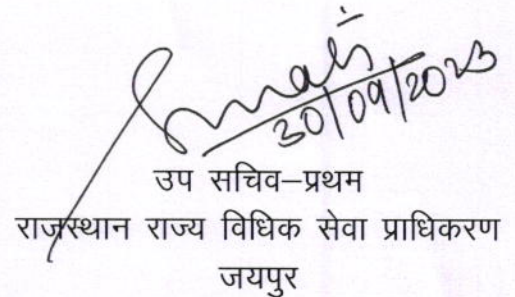 30/09/2023
उप सचिव–प्रथम
राजस्थान राज्य विधिक सेवा प्राधिकरण
जयपुर